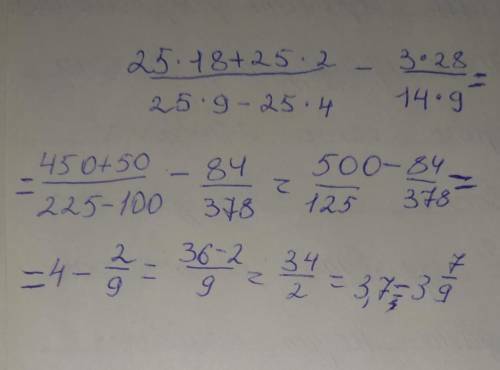 25·18+25·2 / 25·9-25·4 - 3·28 / 14·9 =
= 450+50 / 225-100 - 84 / 378 = 500 / 125 - 84 / 378 =
= 4 - 2 / 9 = 36-2 / 9 = 34 / 2 = 3,7 = 3 7 / 9